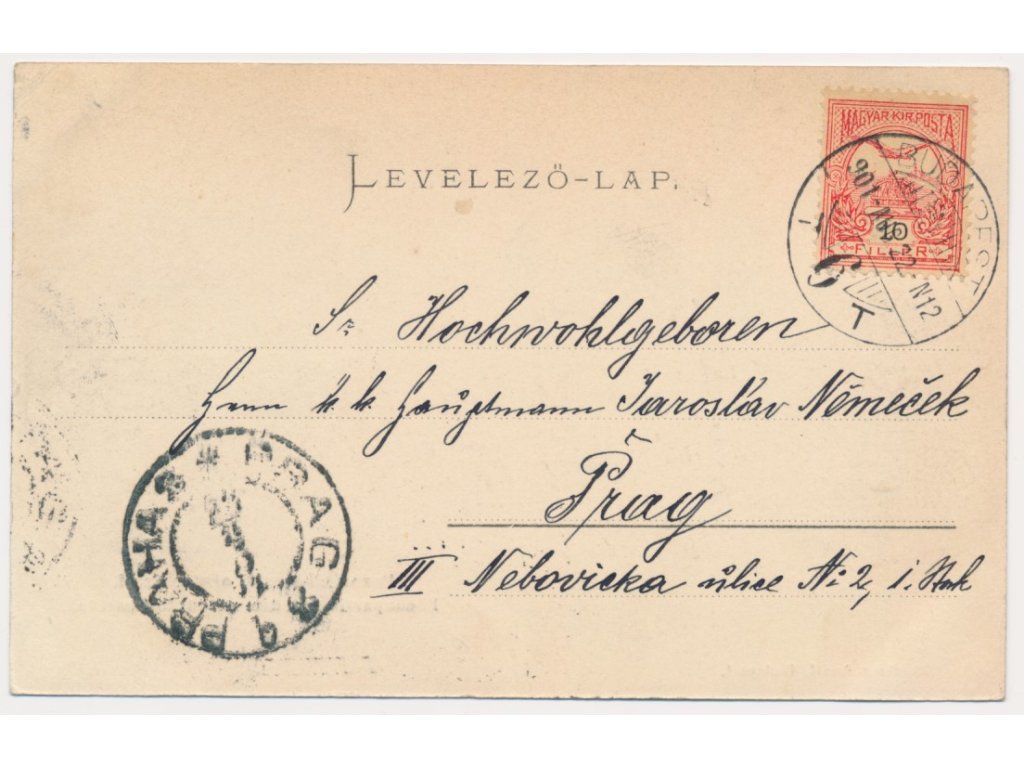 MAGYAR KIR. POSTA
10
FILLÉR
BUDAPEST
901
N12
6
T
LEVELEZŐ-LAP.
Sr. Hochwohlgeboren
Herrn k. k. Hauptmann Jaroslav Němeček
Prag
III Nebovicka ulice No 2, i. Stok
PRAG
PRAHA